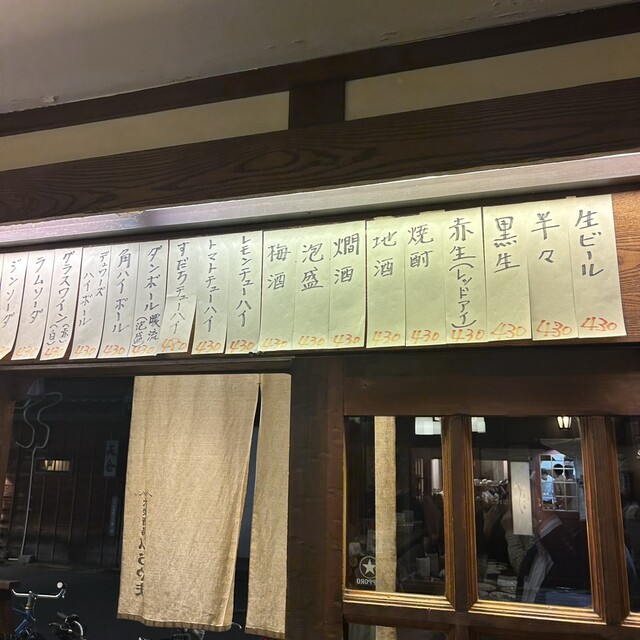 生ビール
430
半々
430
黒生
430
赤生(レッドアイ)
430
焼酎
430
地酒
430
燗酒
430
泡盛
430
梅酒
430
レモンチューハイ
430
トマトチューハイ
430
すだちチューハイ
430
ダンボール
430
角ハイボール
430
デュワーズ
ハイボール
430
グラスワイン(赤)(白)
ラムソーダ
ジンソーダ
SAPPORO